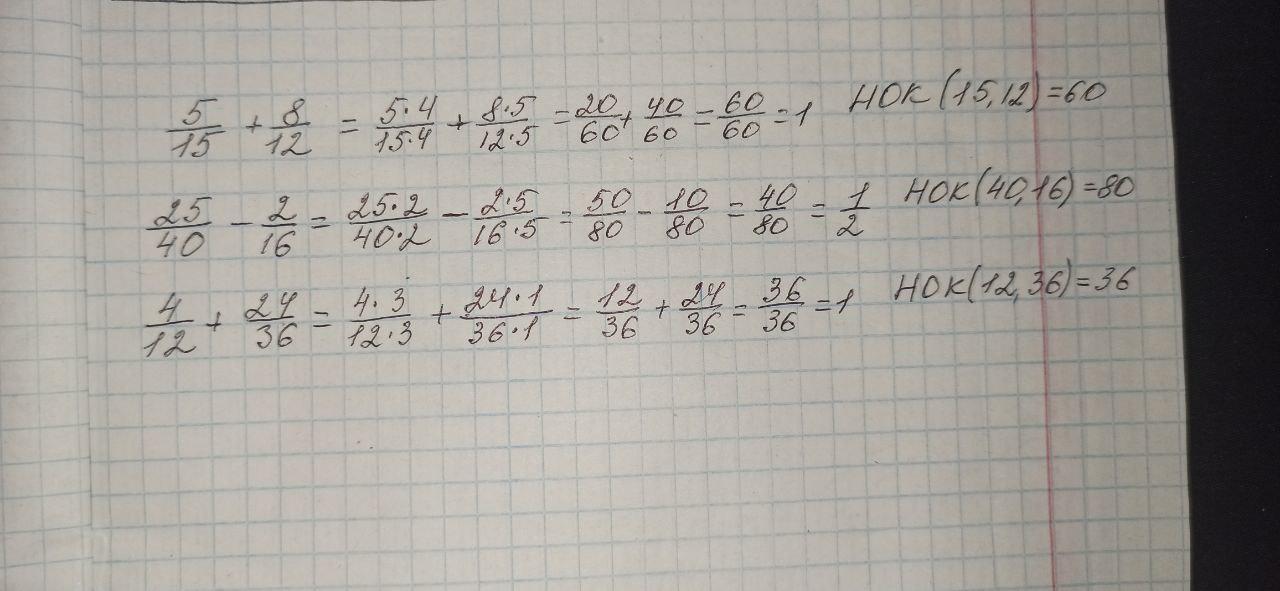 5/15 + 8/12 = 5·4/15·4 + 8·5/12·5 = 20/60 + 40/60 = 60/60 = 1 НОК(15,12)=60
25/40 - 2/16 = 25·2/40·2 - 2·5/16·5 = 50/80 - 10/80 = 40/80 = 1/2 НОК(40,16)=80
4/12 + 24/36 = 4·3/12·3 + 24·1/36·1 = 12/36 + 24/36 = 36/36 = 1 НОК(12,36)=36